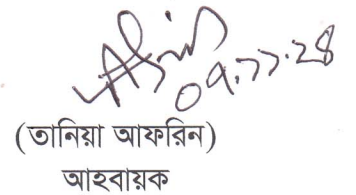 ০৭.১১.২৪
(তানিয়া আফরিন)
আহবায়ক